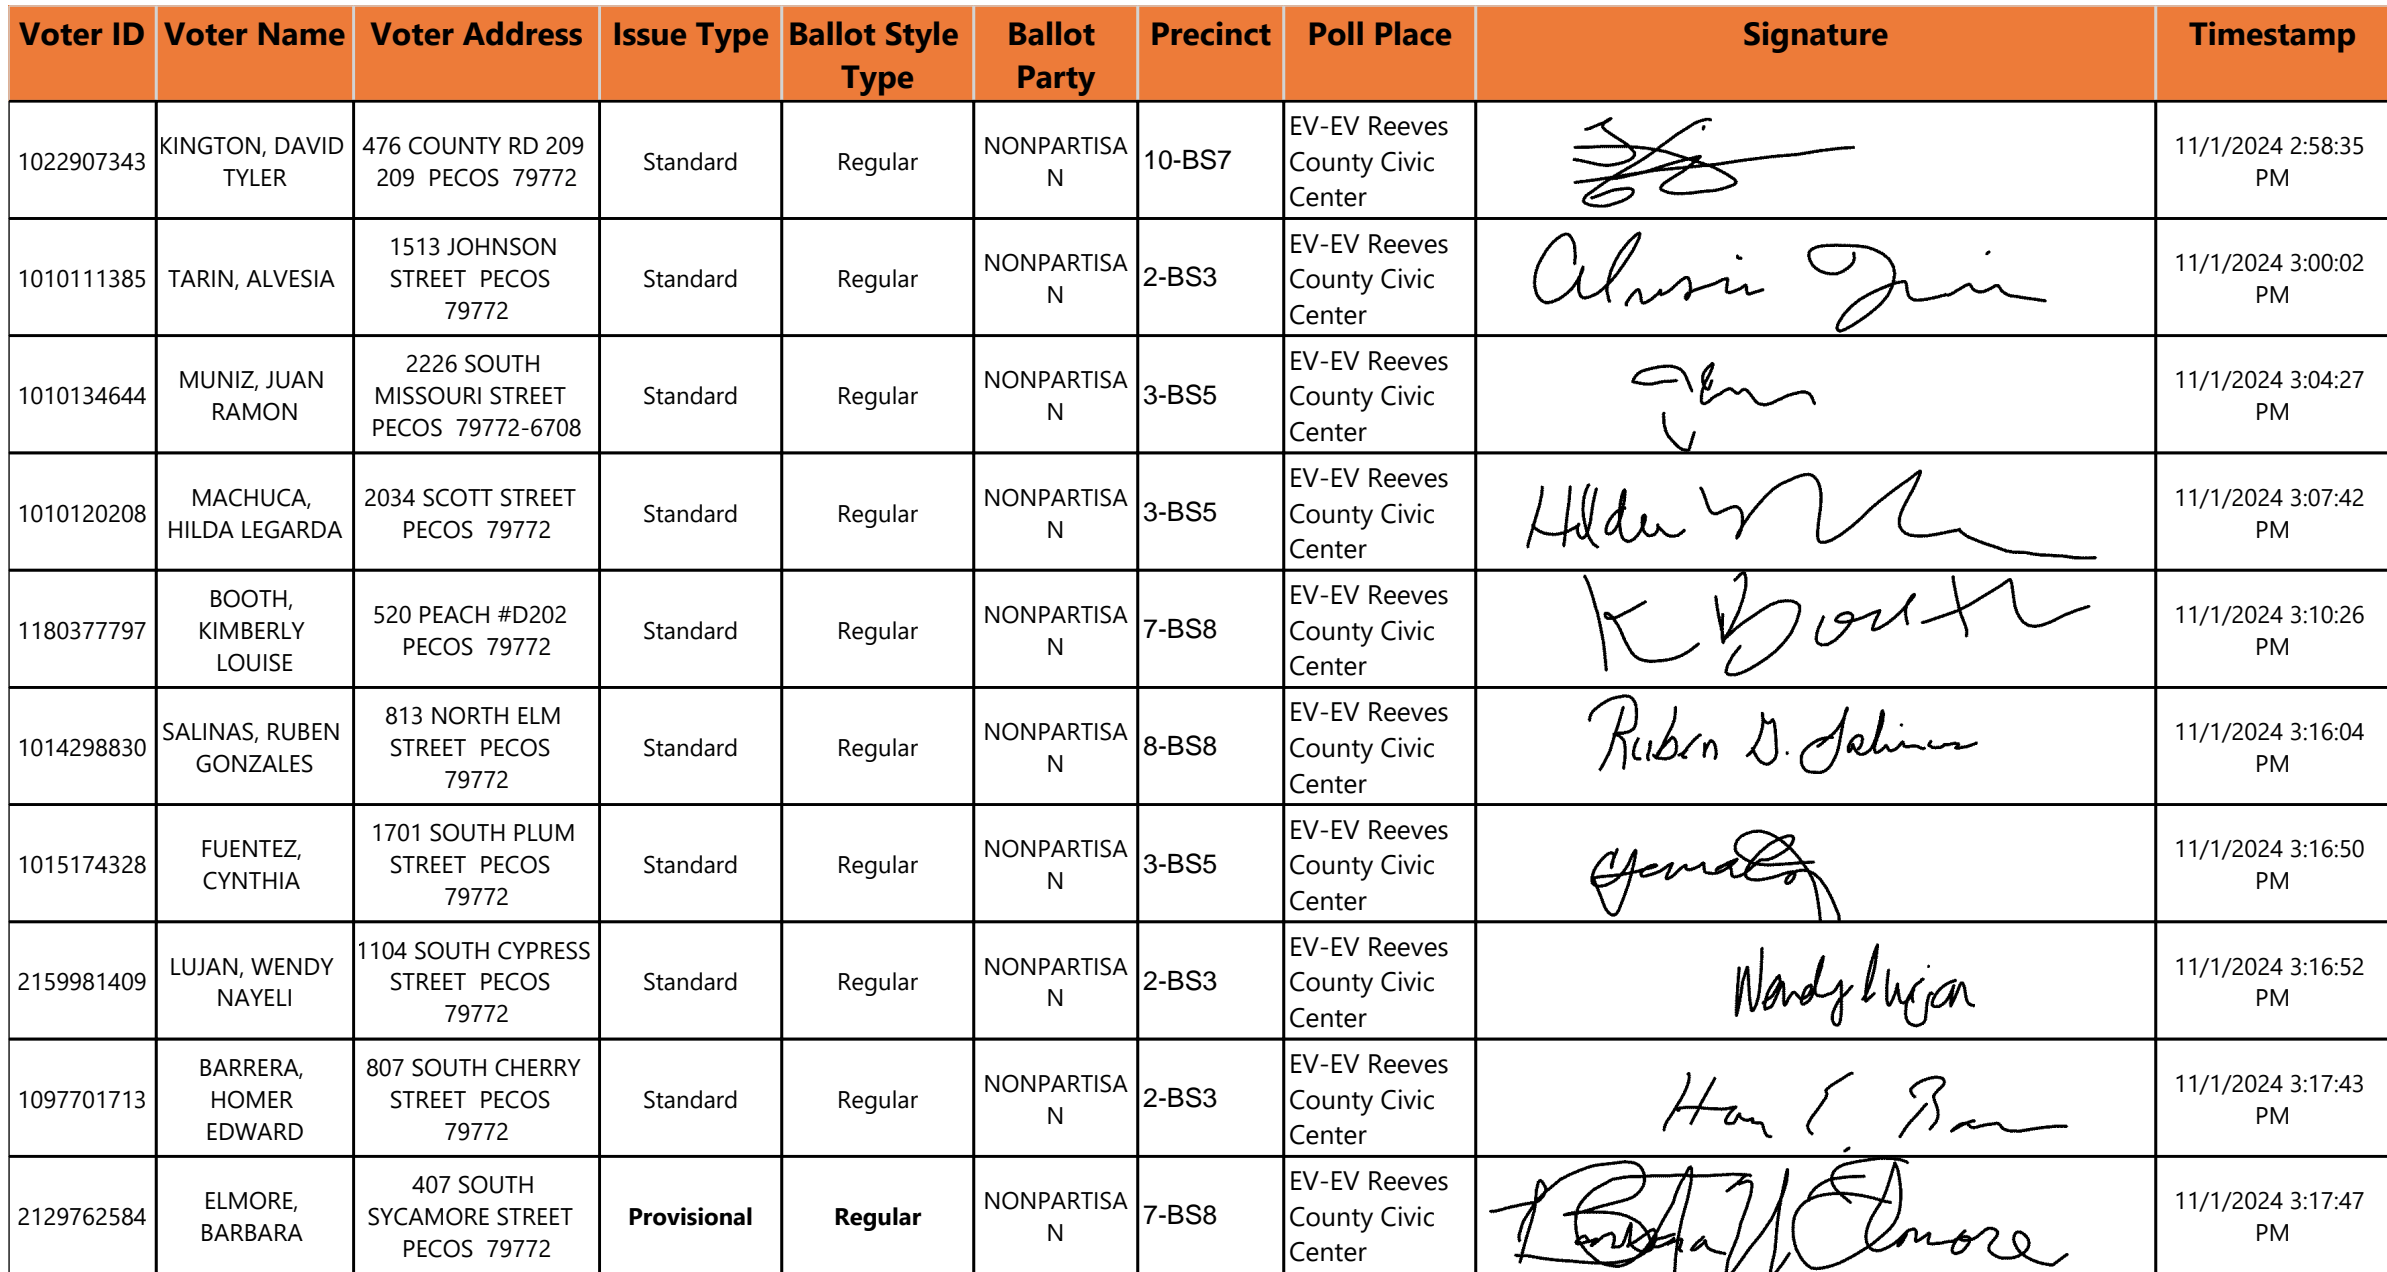 Voter ID Voter Name Voter Address Issue Type Ballot Style Type Ballot Party Precinct Poll Place Signature Timestamp
1022907343 KINGTON, DAVID TYLER 476 COUNTY RD 209 209 PECOS 79772 Standard Regular NONPARTISAN 10-BS7 EV-EV Reeves County Civic Center 11/1/2024 2:58:35 PM
1010111385 TARIN, ALVESIA 1513 JOHNSON STREET PECOS 79772 Standard Regular NONPARTISAN 2-BS3 EV-EV Reeves County Civic Center 11/1/2024 3:00:02 PM
1010134644 MUNIZ, JUAN RAMON 2226 SOUTH MISSOURI STREET PECOS 79772-6708 Standard Regular NONPARTISAN 3-BS5 EV-EV Reeves County Civic Center 11/1/2024 3:04:27 PM
1010120208 MACHUCA, HILDA LEGARDA 2034 SCOTT STREET PECOS 79772 Standard Regular NONPARTISAN 3-BS5 EV-EV Reeves County Civic Center Hilda 11/1/2024 3:07:42 PM
1180377797 BOOTH, KIMBERLY LOUISE 520 PEACH #D202 PECOS 79772 Standard Regular NONPARTISAN 7-BS8 EV-EV Reeves County Civic Center K Booth 11/1/2024 3:10:26 PM
1014298830 SALINAS, RUBEN GONZALES 813 NORTH ELM STREET PECOS 79772 Standard Regular NONPARTISAN 8-BS8 EV-EV Reeves County Civic Center Ruben G. Salinas 11/1/2024 3:16:04 PM
1015174328 FUENTEZ, CYNTHIA 1701 SOUTH PLUM STREET PECOS 79772 Standard Regular NONPARTISAN 3-BS5 EV-EV Reeves County Civic Center 11/1/2024 3:16:50 PM
2159981409 LUJAN, WENDY NAYELI 1104 SOUTH CYPRESS STREET PECOS 79772 Standard Regular NONPARTISAN 2-BS3 EV-EV Reeves County Civic Center Wendy Lujan 11/1/2024 3:16:52 PM
1097701713 BARRERA, HOMER EDWARD 807 SOUTH CHERRY STREET PECOS 79772 Standard Regular NONPARTISAN 2-BS3 EV-EV Reeves County Civic Center 11/1/2024 3:17:43 PM
2129762584 ELMORE, BARBARA 407 SOUTH SYCAMORE STREET PECOS 79772 Provisional Regular NONPARTISAN 7-BS8 EV-EV Reeves County Civic Center Barbara Elmore 11/1/2024 3:17:47 PM